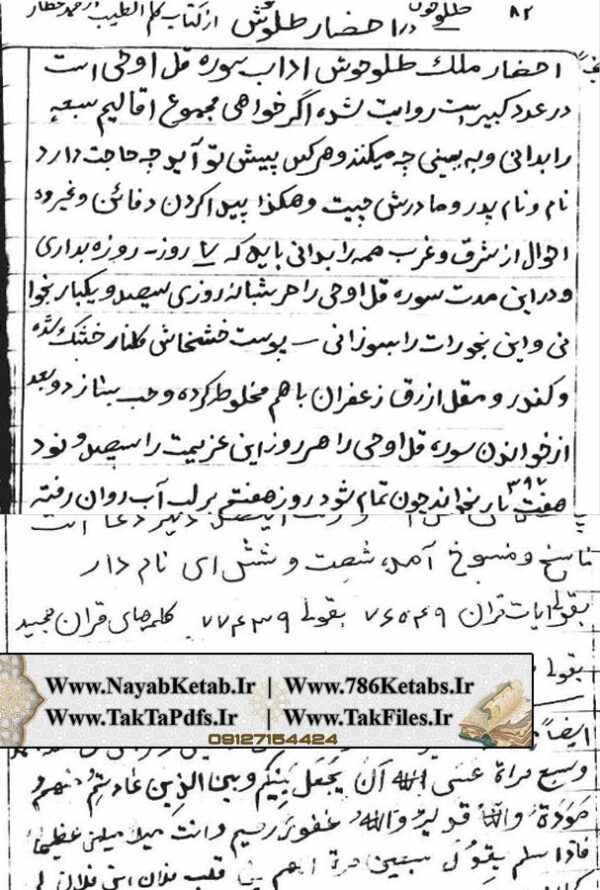 ۸۲
در احضار طلوحوش از کتاب کلم الطیب
احضار ملک طلوحوش اداب سوره قل اوحی است
در عدد کبیر است روایت شده اگر خواهی مجموع اقالیم سبعه
را بدانی و به بینی چه میکنند و هر کس پیش تو آید چه حاجت دارد
نام و نام پدر و مادرش چیست و هکذا پیدا کردن دفائن و غیره
احوال از شرق و غرب همه را بدانی باید که ۷ روز روزه بداری
و در این مدت سوره قل اوحی را هر شبانه روزی سیصد و یکبار بخوا
نی و این بخورات را بسوزانی - پوست خشخاش گلنار خشک شده
و کندر و مقل ازرق زعفران با هم مخلوط کرده و حب بساز و بعد
از خواندن سوره قل اوحی را هر روز این عزیمت را سیصد و نود
هفت ۳۹۷ بار بخواند چون تمام شود روز هفتم بر لب آب روان رفته
ناسخ و منسوخ آمد، شصت و شش ای نام دار
بقولی ایات قران بقولی ۷۷۴۳۹ کلمه های قران مجید
بقولی
Www.NayabKetab.Ir | Www.786Ketabs.Ir
Www.TakTaPdfs.Ir | Www.TakFiles.Ir
09127154424
ایضاً
و سبع مراة عسی الله أن یجعل بینکم وبین الذین عادیتم منهم
مودة والله قدیر والله غفور رحیم وانت
فاذا سلم یقول سبعین مرة اللهم قلب فلان ابن فلان